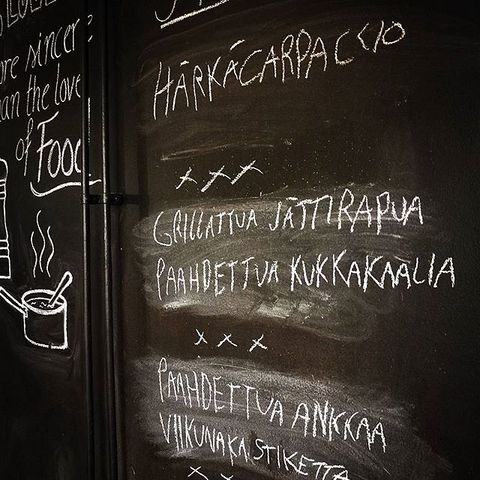 ore sincere
an the love
of Food
HÄRKÄCARPACCIO
x x x
GRILLATTUA JÄTTIRAPUA
PAAHDETTUA KUKKAKAALIA
x x x
PAAHDETTUA ANKKAA
VIIKUNAKASTIKETTA
x x